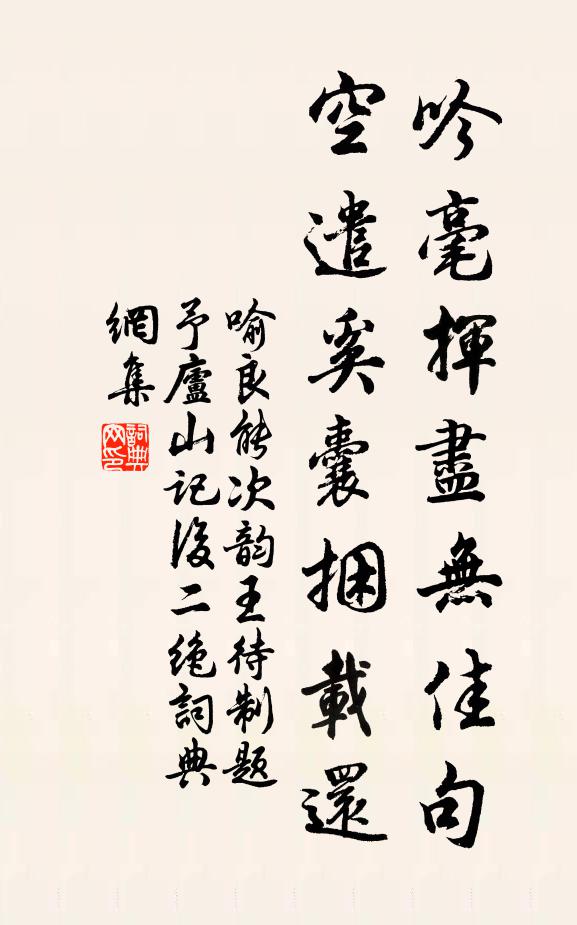 吟毫揮盡無佳句
空遣奚囊捆載還
喻良能次韵王待制題
予廬山记後二绝詞典
網集
詞典網印